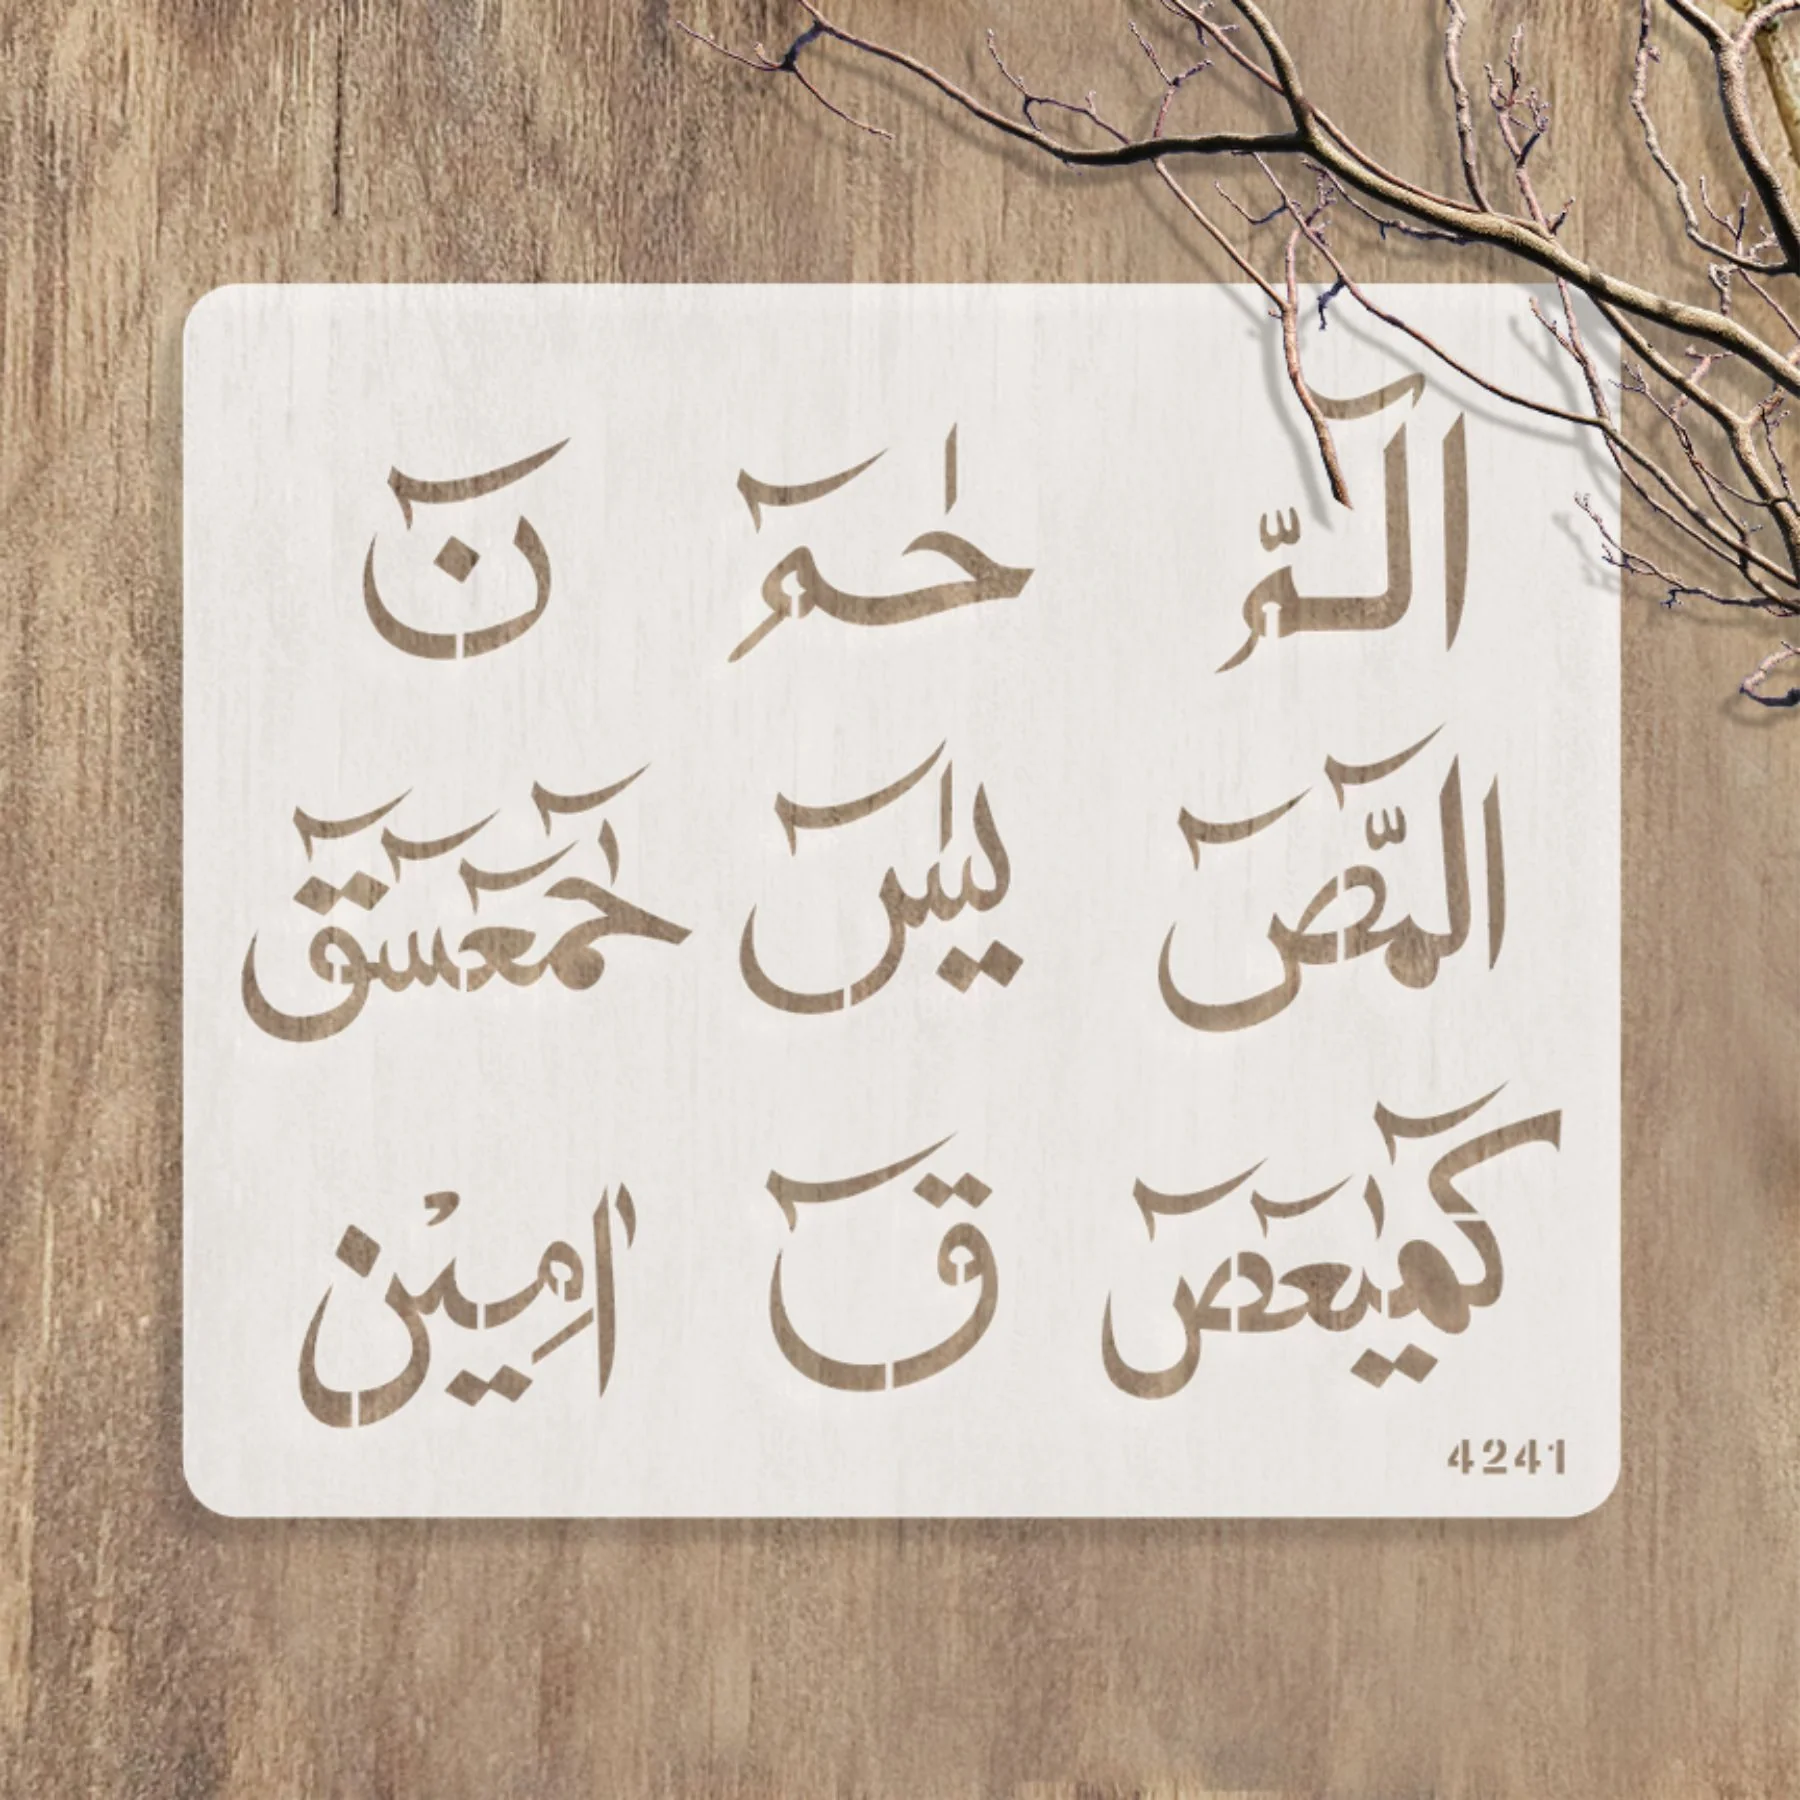 الٓمّٓ حٰمٓ نٓ
الٓمّٓصٓ يٰسٓ حٰمٓعٓسٓقٓ
كٓهٰيٰعٓصٓ قٓ اٰمِيْن
4241